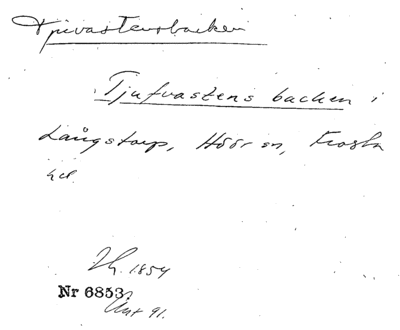 Tjuvastensbacken
Tjufvastens backen i
Långstorp, Höör sn, Frosta
hd.
1854
Nr 6853.
91.